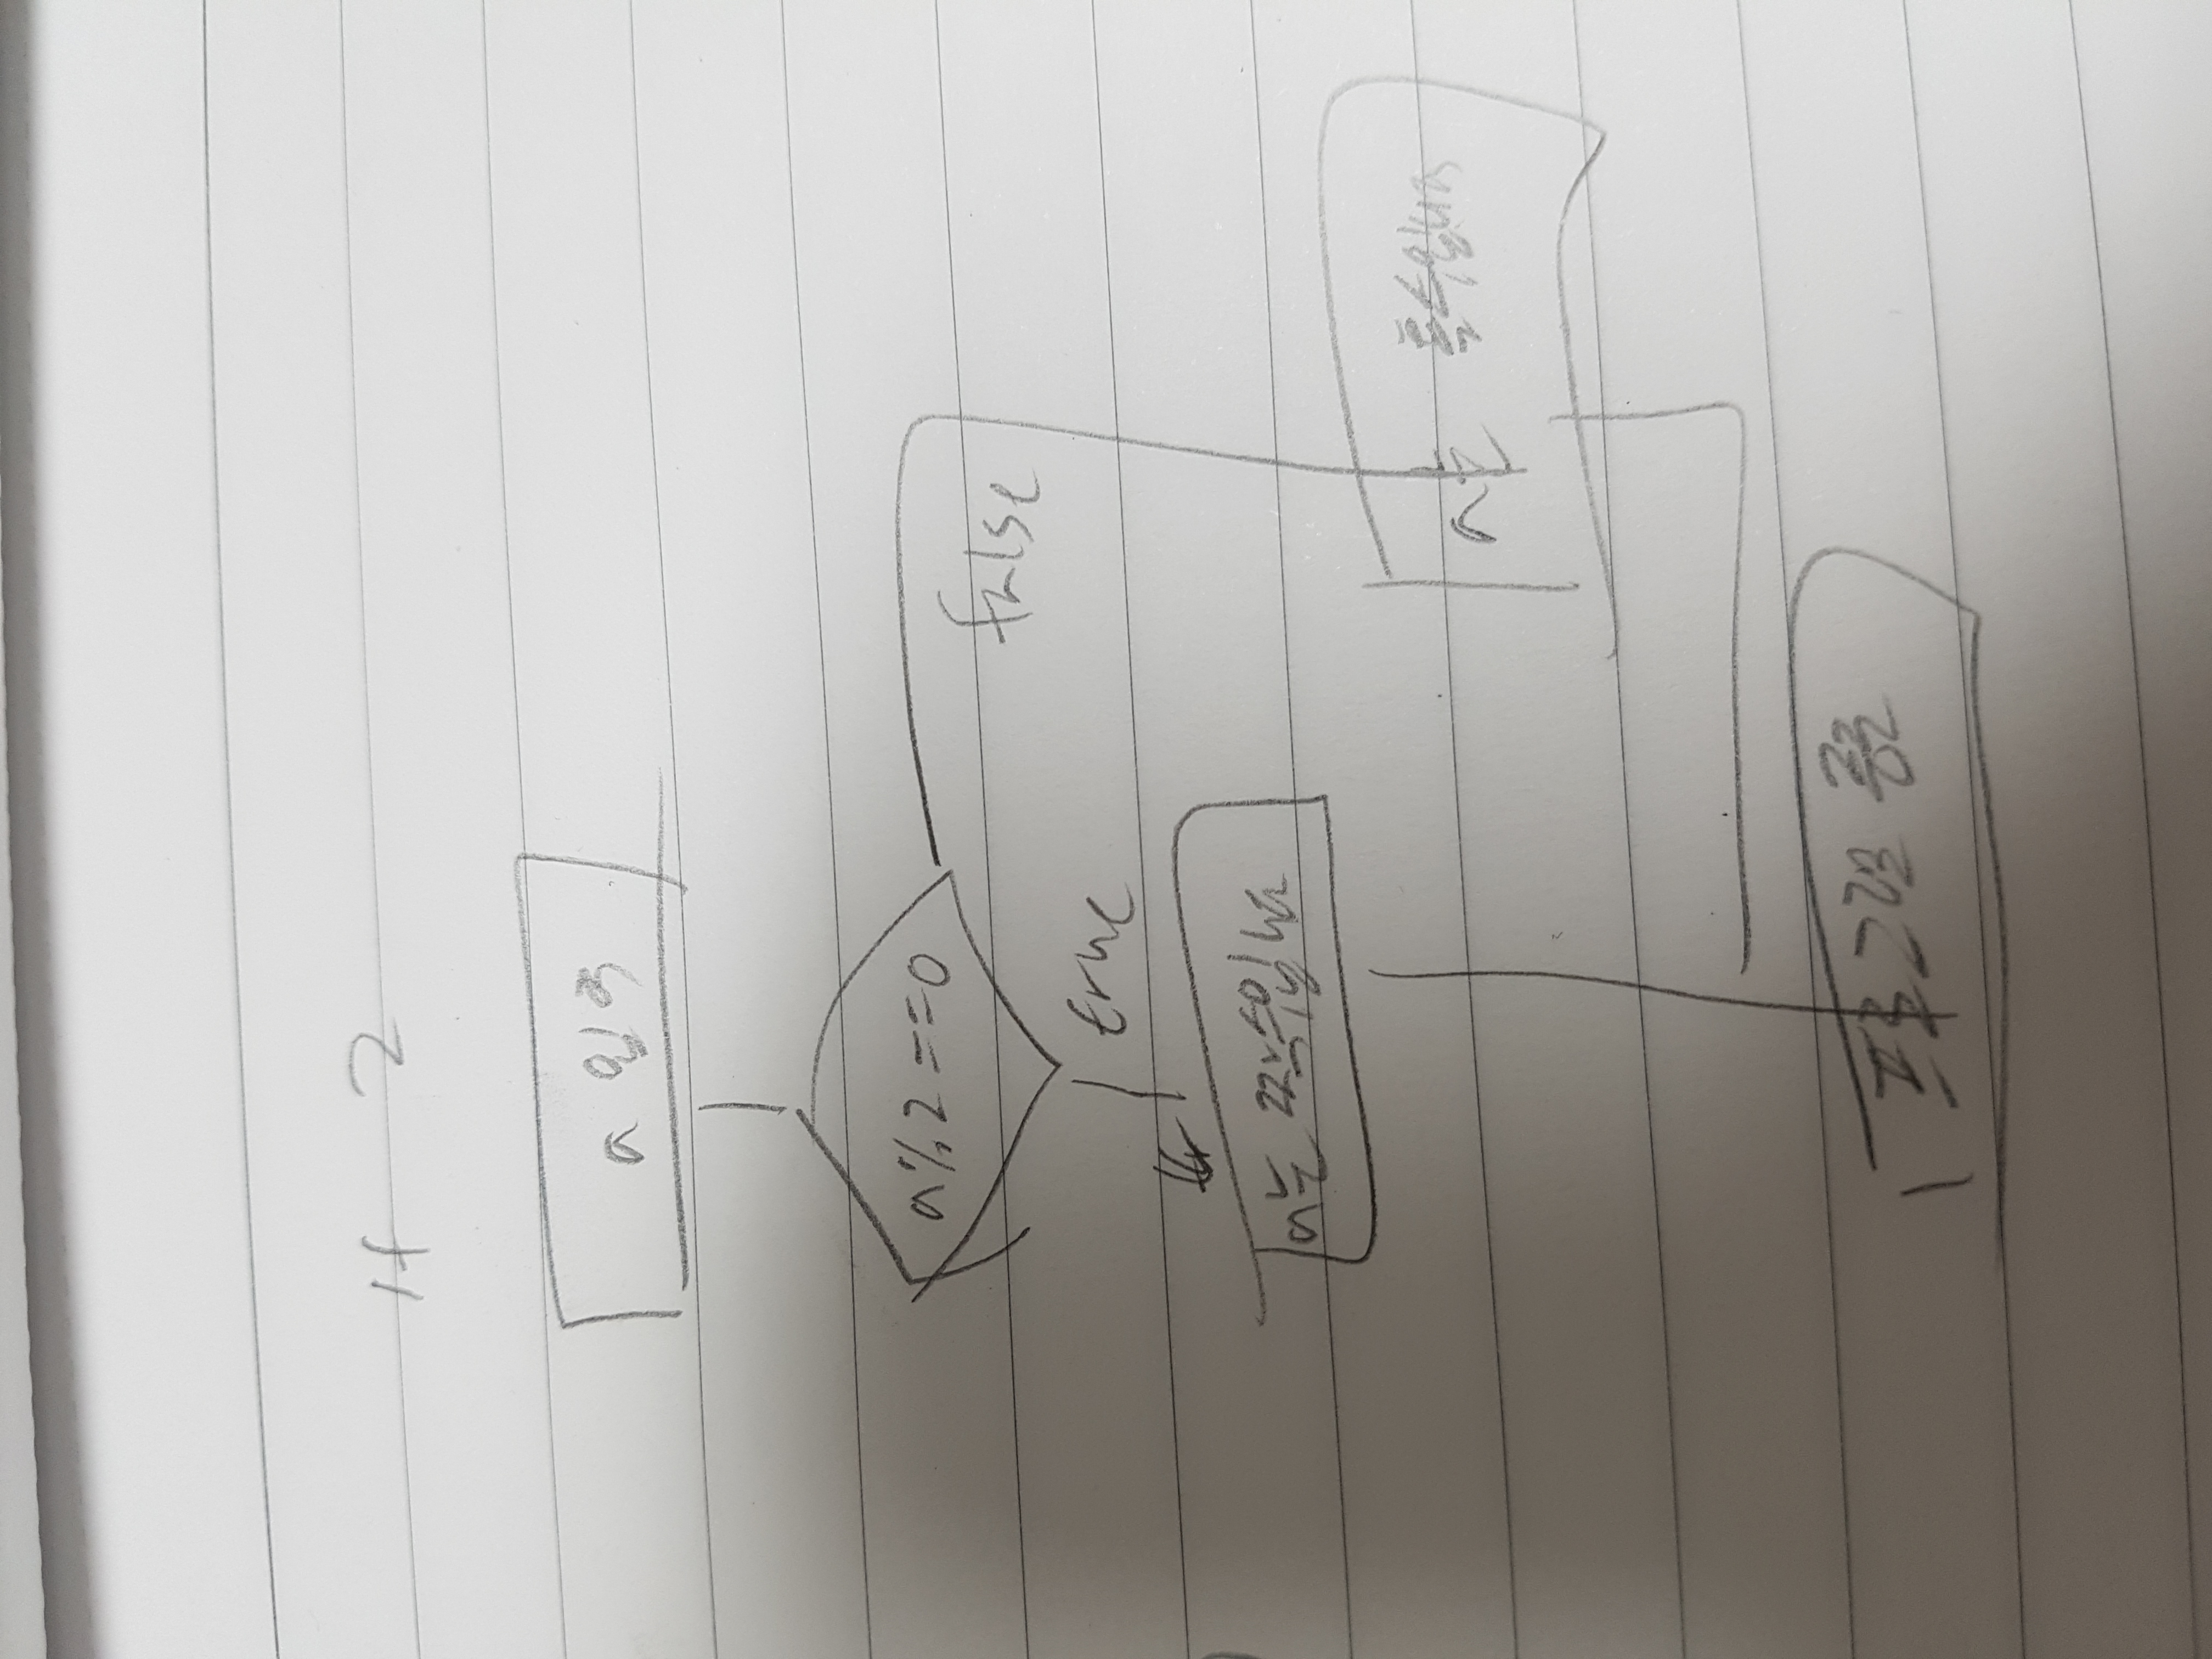 if 2
a 입력
a%2==0
false
true
a는 짝수입니다
a는 홀수입니다
프로그램 종료